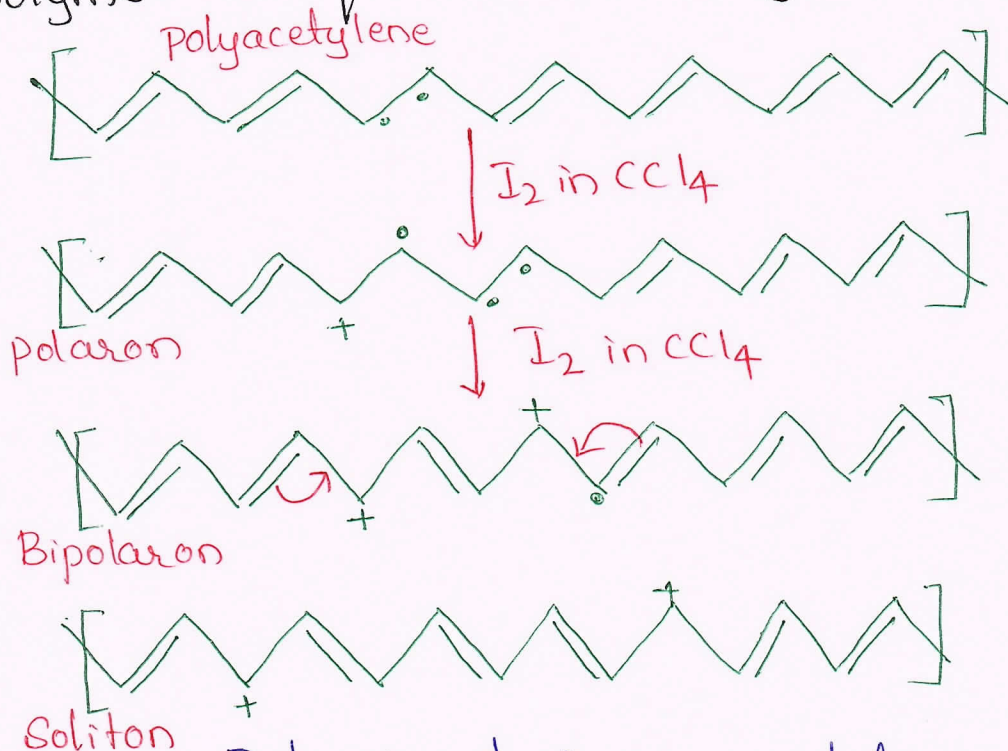 Polyacetylene
I2 in CCl4
+
polaron
I2 in CCl4
+
+
Bipolaron
+
+
Soliton